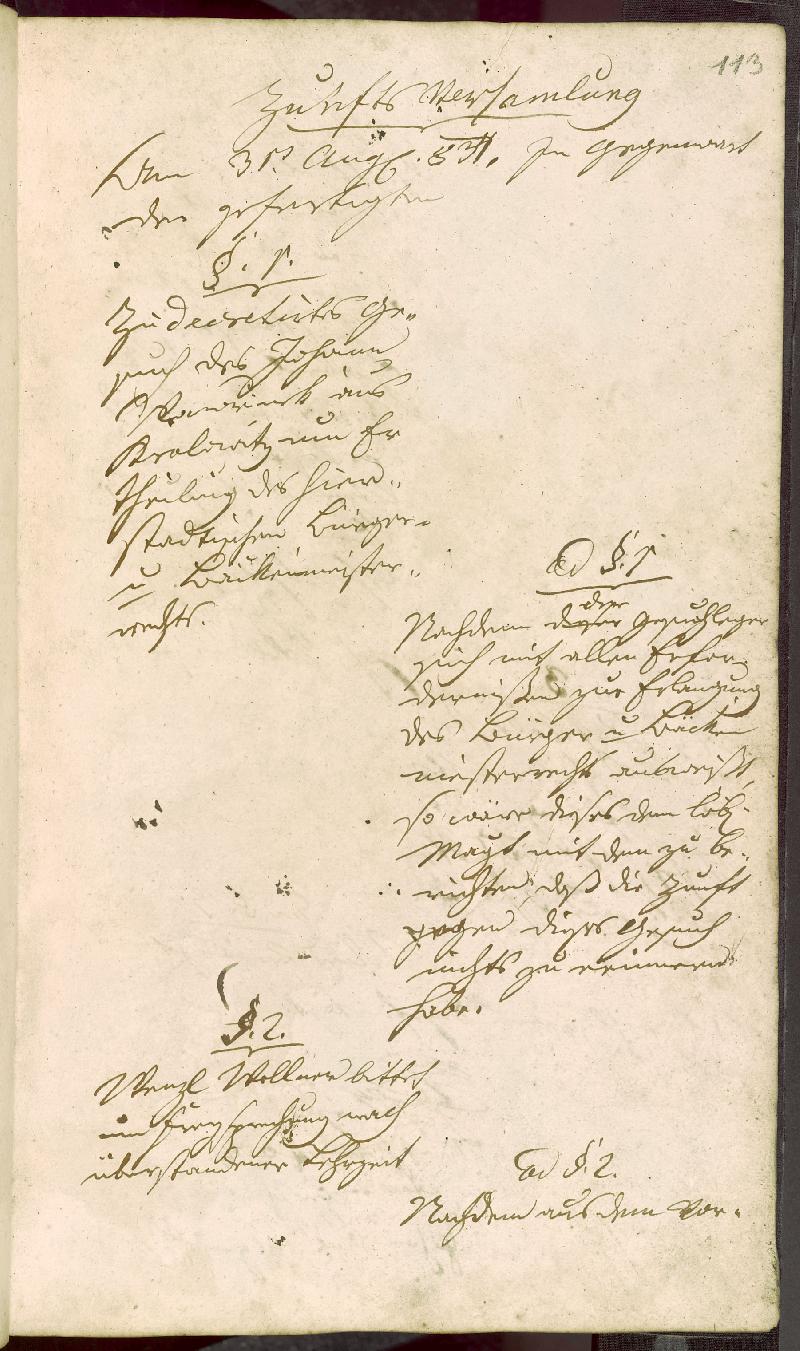 113
Zunfts Versamlung
Am 31t Aug. 831, In Gegenwart
der gefertigten
§. 1.
Zudecretirtes Ge-
such des Johann
aus
Kralowitz um Er
theilung des hier-
städtischen Bürger-
u Bäckenmeister-
rechts.
ad §. 1
Nachdem der Gesuchleger
sich mit allen Erfor-
dernißen zur Erlangung
des Bürger u Bäcken
meisterrechts ausweißt,
so wäre dieses dem löbl.
Magt mit dem zu be-
richten, daß die Zunft
gegen dieses Gesuch
nichts zu erinnern
habe.
§. 2.
Wenzl Wellner bittet
um Freysprechung nach
überstandener Lehrzeit
ad §. 2.
Nachdem aus dem Vor-